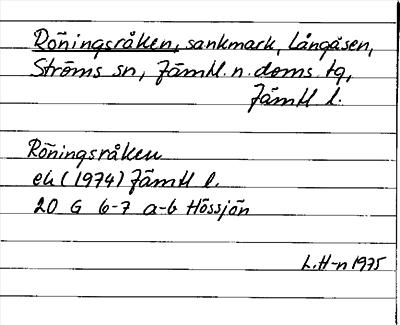 Röningsråken, sankmark, Långåsen,
Ströms sn, Jämtl. n. doms. tg,
Jämtl l.
Röningsråken
ek (1974) Jämtl l.
20 G 6-7 a-b Hössjön
L.H-n 1975